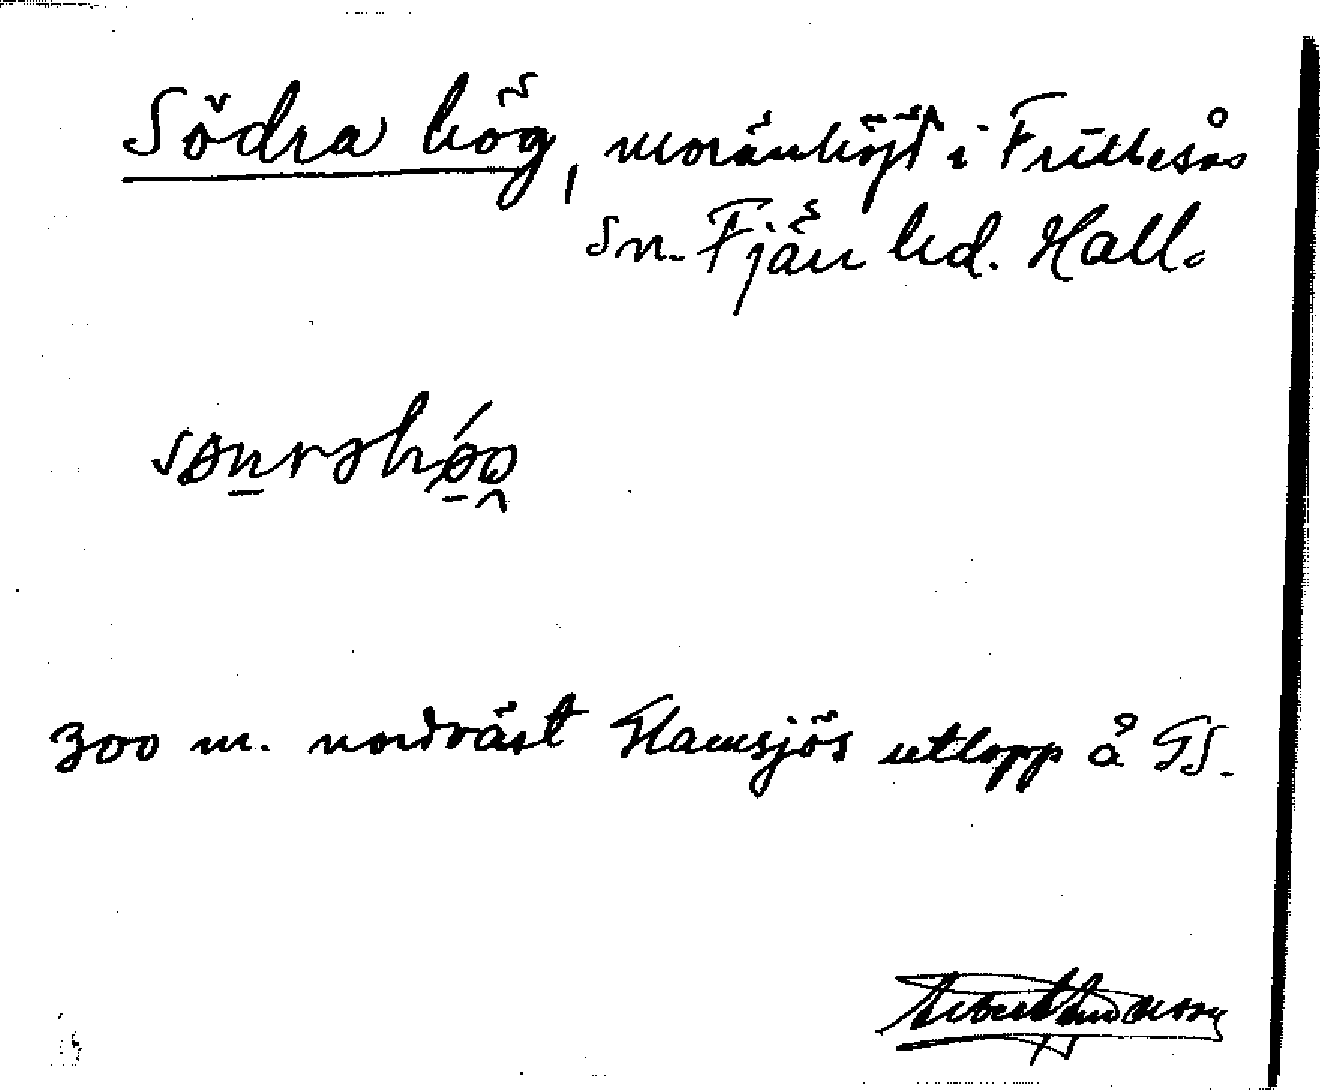 Södra hög, moränhöjd i Frillesås
sn. Fjäre hd. Hall.
300 m. nordväst Hamsjös utlopp å TS.
Albert Andersson